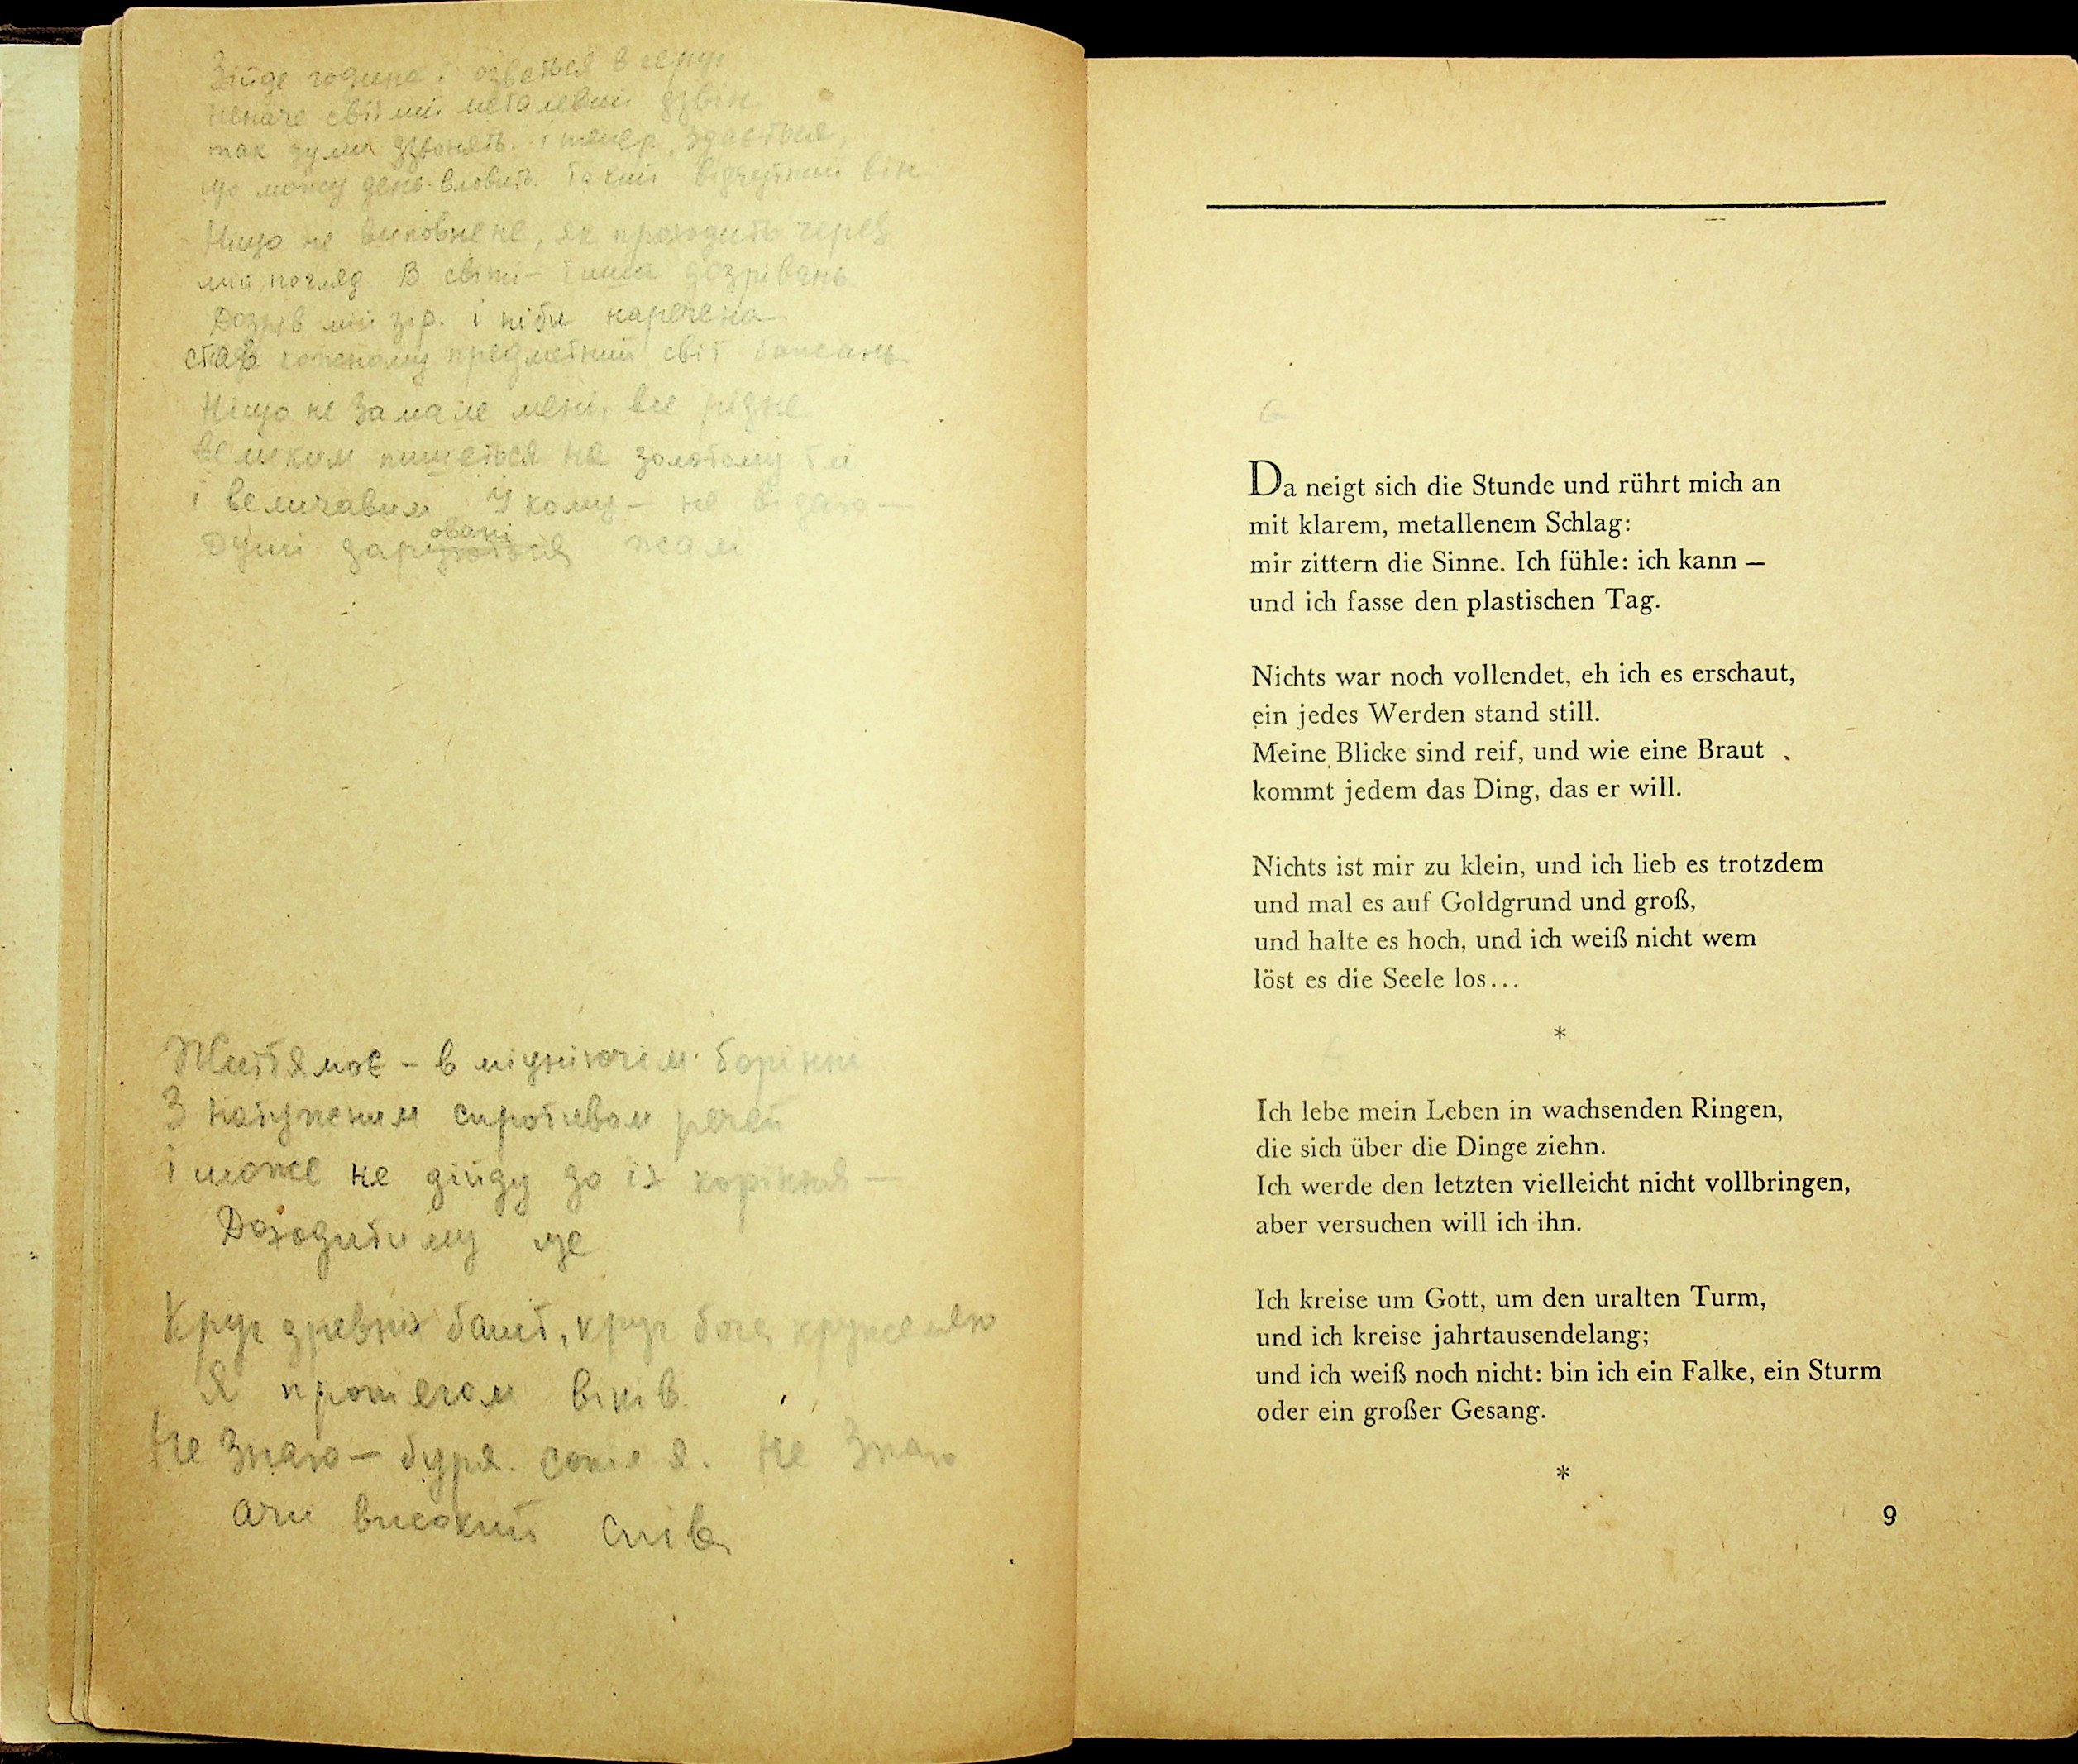 Зійде година і озветься в серці
неначе світлий металевий дзвін
так думи дзвонять. і тепер, здається,
що можу день вловить. Такий відчутний він
Ніщо не виповнене, як проходить через
мій погляд В світі – тиша дозрівань
Дозрів мій зір. і ніби наречена
став кожному предметний світ бажань
Ніщо не замале мені, все рідне
великим пишеться на золотому тлі
і величавим У кому – не відаю –
Душі даровані жалі
Життя моє – в міцніючім борінні
З натуженим спротивом речей
і може не дійду до їх коріння –
Доходитиму ще
Круг древніх башт, круг бога кружеляю
Я протягом віків.
Не знаю – буря. сокіл я. Не знаю
ачи високий спів
Da neigt sich die Stunde und rührt mich an
mit klarem, metallenem Schlag:
mir zittern die Sinne. Ich fühle: ich kann —
und ich fasse den plastischen Tag.
Nichts war noch vollendet, eh ich es erschaut,
ein jedes Werden stand still.
Meine Blicke sind reif, und wie eine Braut
kommt jedem das Ding, das er will.
Nichts ist mir zu klein, und ich lieb es trotzdem
und mal es auf Goldgrund und groß,
und halte es hoch, und ich weiß nicht wem
löst es die Seele los...
*
Ich lebe mein Leben in wachsenden Ringen,
die sich über die Dinge ziehn.
Ich werde den letzten vielleicht nicht vollbringen,
aber versuchen will ich ihn.
Ich kreise um Gott, um den uralten Turm,
und ich kreise jahrtausendelang;
und ich weiß noch nicht: bin ich ein Falke, ein Sturm
oder ein großer Gesang.
*
9